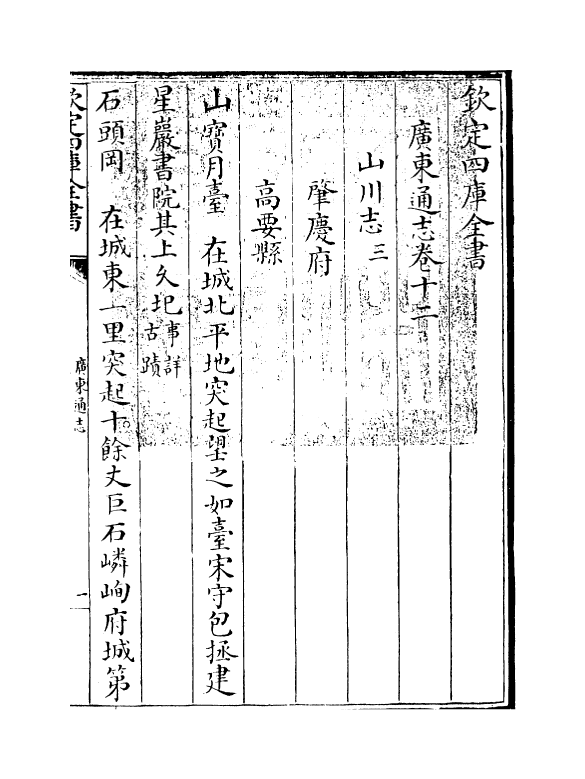 欽定四庫全書
廣東通志卷十二
山川志三
肇慶府
高要縣
山寶月臺　在城北平地突起望之如臺宋守包拯建
星巖書院其上久圯事詳古蹟
石頭岡　在城東一里突起十餘丈巨石嶙峋府城第
欽定四庫全書
廣東通志
一